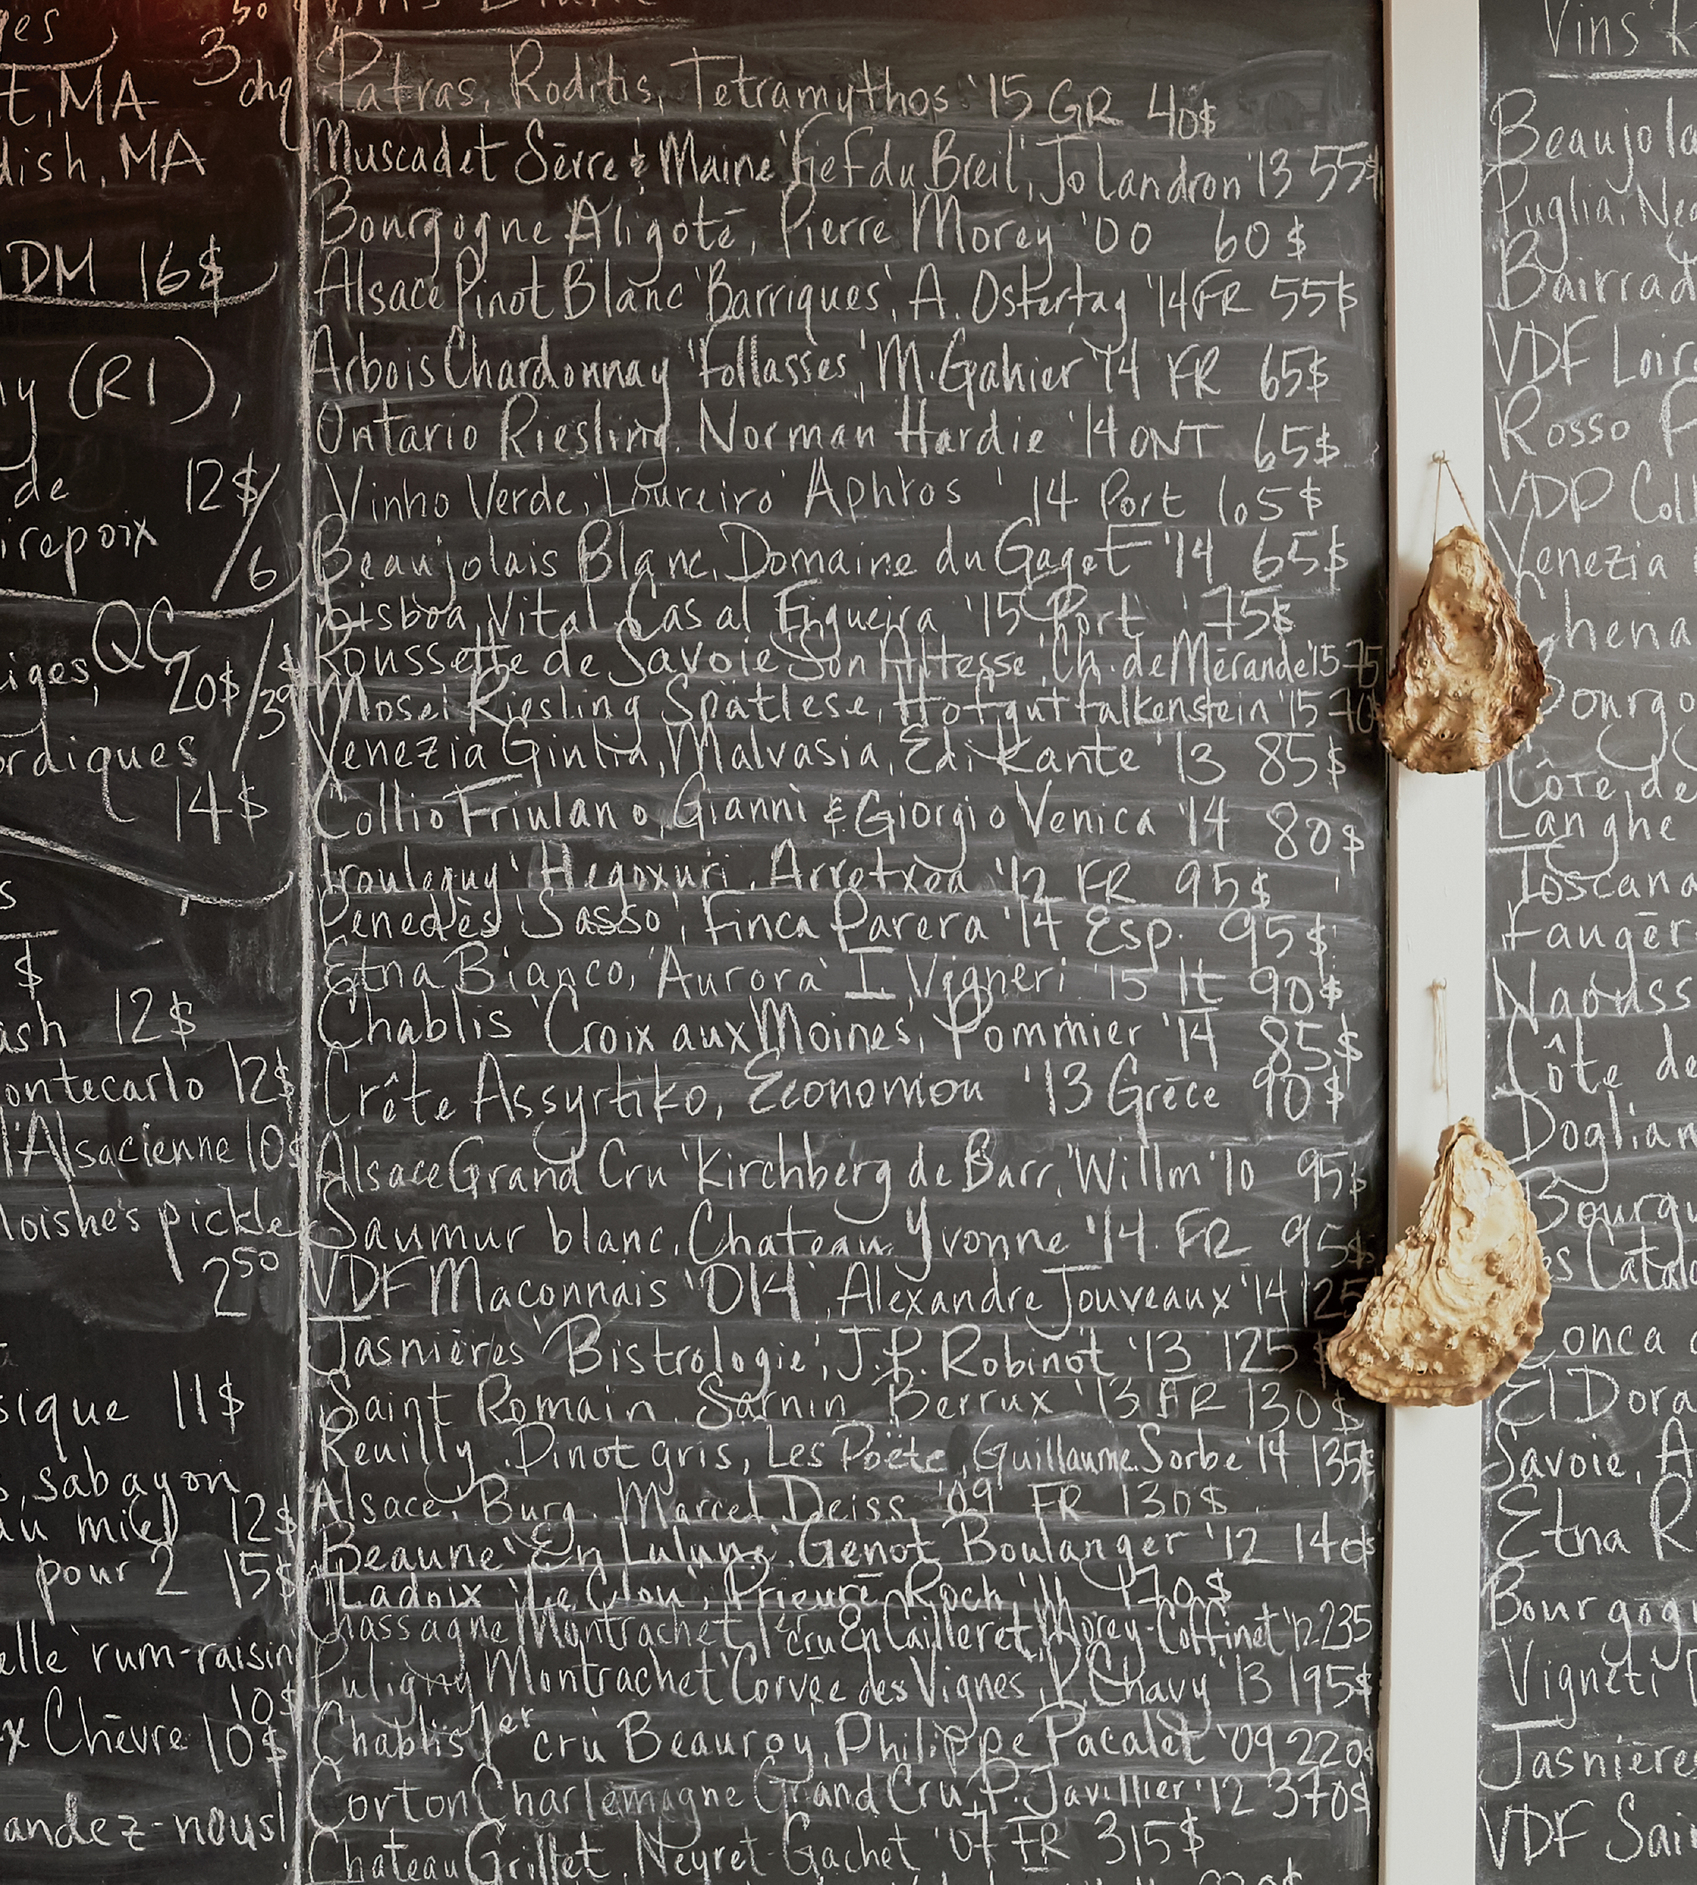 es
50
3 chq
t, MA
dish, MA
DM 16$
y (RI),
de 12$/
irepoix /6
iges, QC
20$/39$
ordiques
14$
s
$
ash 12$
ontecarlo 12$
l'Alsacienne 10$
loishe's pickle
2 50
sique 11$
, sabayon
au miel 12$
pour 2 15$
elle rum-raisin
10$
x Chèvre 10$
andez-nous!
Vins Blanc
Patras, Roditis, Tetramythos '15 GR 40$
Muscadet Sèvre & Maine 'Fief du Breil', Jo Landron '13 55$
Bourgogne Aligoté, Pierre Morey '00 60$
Alsace Pinot Blanc 'Barriques', A. Ostertag '14 FR 55$
Arbois Chardonnay 'Follasses', M. Gahier '14 FR 65$
Ontario Riesling, Norman Hardie '14 ONT 65$
Vinho Verde, 'Loureiro' Aphros '14 Port 65$
Beaujolais Blanc, Domaine du Gaget '14 65$
Lisboa, Vital, Casal Figueira '15 Port 75$
Roussette de Savoie 'Son Altesse', Ch. de Mérande '15 75
Mosel Riesling Spätlese, Hofgut Falkenstein '15 70
Venezia Giulia, Malvasia, Edi Kante '13 85$
Collio Friulano, Gianni & Giorgio Venica '14 80$
Irouleguy 'Hegoxuri', Arretxea '12 FR 95$
Penedès 'Sasso', Finca Parera '14 Esp. 95$
Etna Bianco, 'Aurora' I Vigneri '15 It 90$
Chablis 'Croix aux Moines', Pommier '14 85$
Crête Assyrtiko, Economou '13 Grèce 90$
Alsace Grand Cru 'Kirchberg de Barr', Willm '10 95$
Saumur blanc, Chateau Yvonne '14 FR 95$
VDF Maconnais 'D14', Alexandre Jouveaux '14 125
Jasnières 'Bistrologie', J.P. Robinot '13 125
Saint Romain, Sarnin Berrux '13 FR 130$
Reuilly Pinot gris, Les Poëte, Guillaume Sorbe '14 135$
Alsace, Burg, Marcel Deiss '09 FR 130$
Beaune 'En Lulune', Genot Boulanger '12 140$
Ladoix 'Le Clou', Prieuré Roch '11 170$
Chassagne Montrachet 1er cru En Cailleret, Morey-Coffinet '12 235
Puligny Montrachet 'Corvée des Vignes', P. Chavy '13 195$
Chablis 1er cru Beauroy, Philippe Pacalet '09 220$
Corton Charlemagne Grand Cru, P. Javillier '12 370$
Chateau Grillet, Neyret-Gachet '07 FR 315$
Vins R
Beaujola
Puglia, Neg
Bairrad
VDF Loir
Rosso P
VDP Coll
Venezia
Ghena
Bourgo
Côte de
Langhe
Toscana
Faugèr
Naouss
Côte de
Doglian
Bourgu
es Catala
Conca
El Dora
Savoie, A
Etna R
Bourgog
Vigneti
Jasnières
VDF Sai